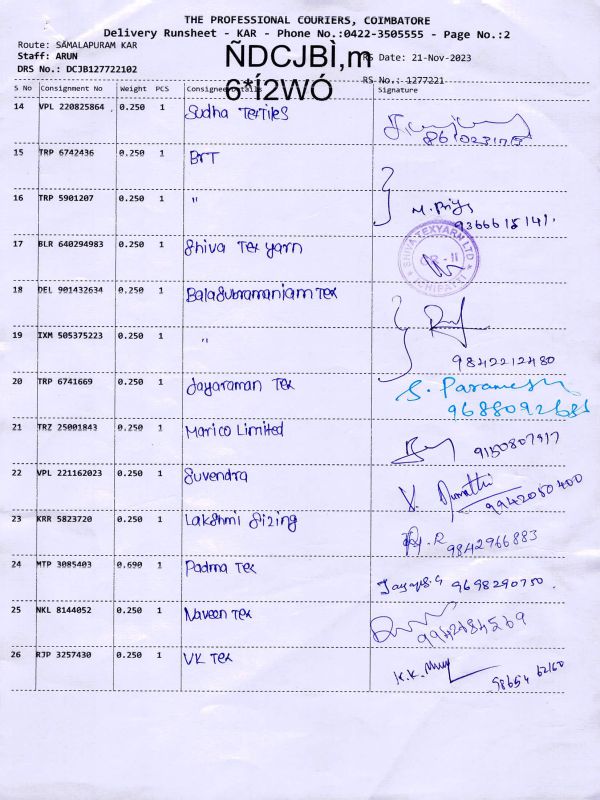 THE PROFESSIONAL COURIERS, COIMBATORE
Delivery Runsheet - KAR - Phone No.:0422-3505555 - Page No.:2
Route: SAMALAPURAM KAR
Staff: ARUN
DRS No.: DCJB127722102
ÑDCJBÌ,m
6*Í2WÓ
RS Date: 21-Nov-2023
RS No.: 1277221
S No Consignment No Weight PCS Consignee Details Signature
14 VPL 220825864 0.250 1 Sudha Textiles
15 TRP 6742436 0.250 1 BRT
16 TRP 5901207 0.250 1 "
M. Priya
9366615141.
17 BLR 640294983 0.250 1 Shiva Tex yarn
SHIVA TEXYARN LTD
18 DEL 901432634 0.250 1 Balasubramaniam Tex
19 IXM 505375223 0.250 1 "
9842212480
20 TRP 6741669 0.250 1 Jayaraman Tex
S. Paramesh
21 TRZ 25001843 0.250 1 Marico Limited 9150807917
22 VPL 221162023 0.250 1 Suvendra
9942050400
23 KRR 5823720 0.250 1 Lakshmi Sizing
9842966883
24 MTP 3085403 0.690 1 Padma Tex
9698290750.
25 NKL 8144052 0.250 1 Naveen Tex
26 RJP 3257430 0.250 1 VK Tex
K.K.
98654 62160